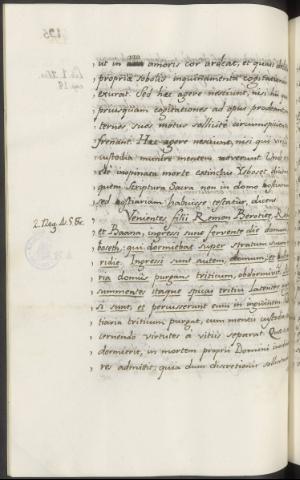 195
Lib. 1. Mor.
cap. 18.
ut in amoris cor ardeat, et quasi
propria sobolis inquinamenta cogitationum
exurat. Sed hæc agere nesciunt, nisi hi qui
priusquam cogitationes ad opus prodeant
ternos suos motus sollicité circumspicientes
frenant. Hæc agere nesciunt, nisi qui virili
custodia munire mentem noverunt. Unde
de inopinata morte extinctus Ysboset dicitur
quem Scriptura Sacra non in domo
sed ostiariam habuisse testatur, dicens
2. Reg. 4. 5. &c.
Venientes filii Remon Berotitæ, Re
et Baana, ingressi sunt fervente die domum
boseth; qui dormiebat super stratum suum
ridie. Ingressi sunt autem domum; et ostia
ria domus purgans triticum, obdormivit
summentes itaque spicas tritici latenter
si sunt et percusserunt eum in inguine.
tiaria triticum purgat, cum mentis custodia
cernendo virtutes à vitiis separat. Quæ
dormierit, in mortem proprii Domini insidiato
res admitit; quia dum discretionis sollicitudo